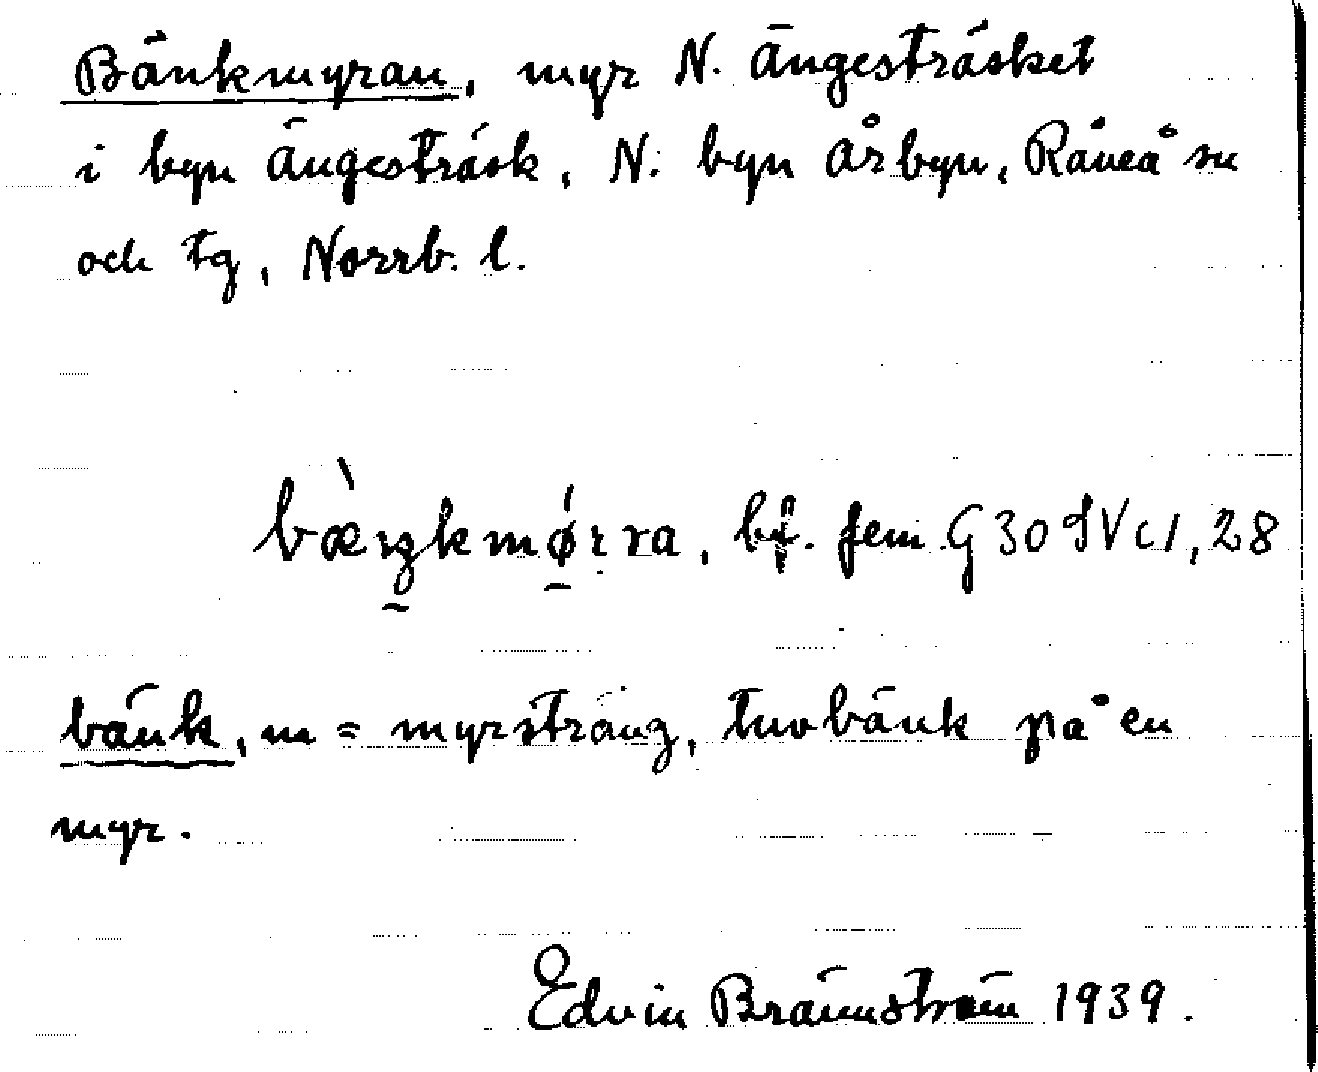 Bänkmyran, myr N. Ängesträsket
i byn Ängesträsk, N. byn Årbyn, Råneå sn
och tg, Norrb. l.
bæ̀ŋkmǿrra, bf. fem. G 30 IV c 1, 28
bänk, m = myrsträng, tuvbänk på en
myr.
Edvin Brännström 1939.